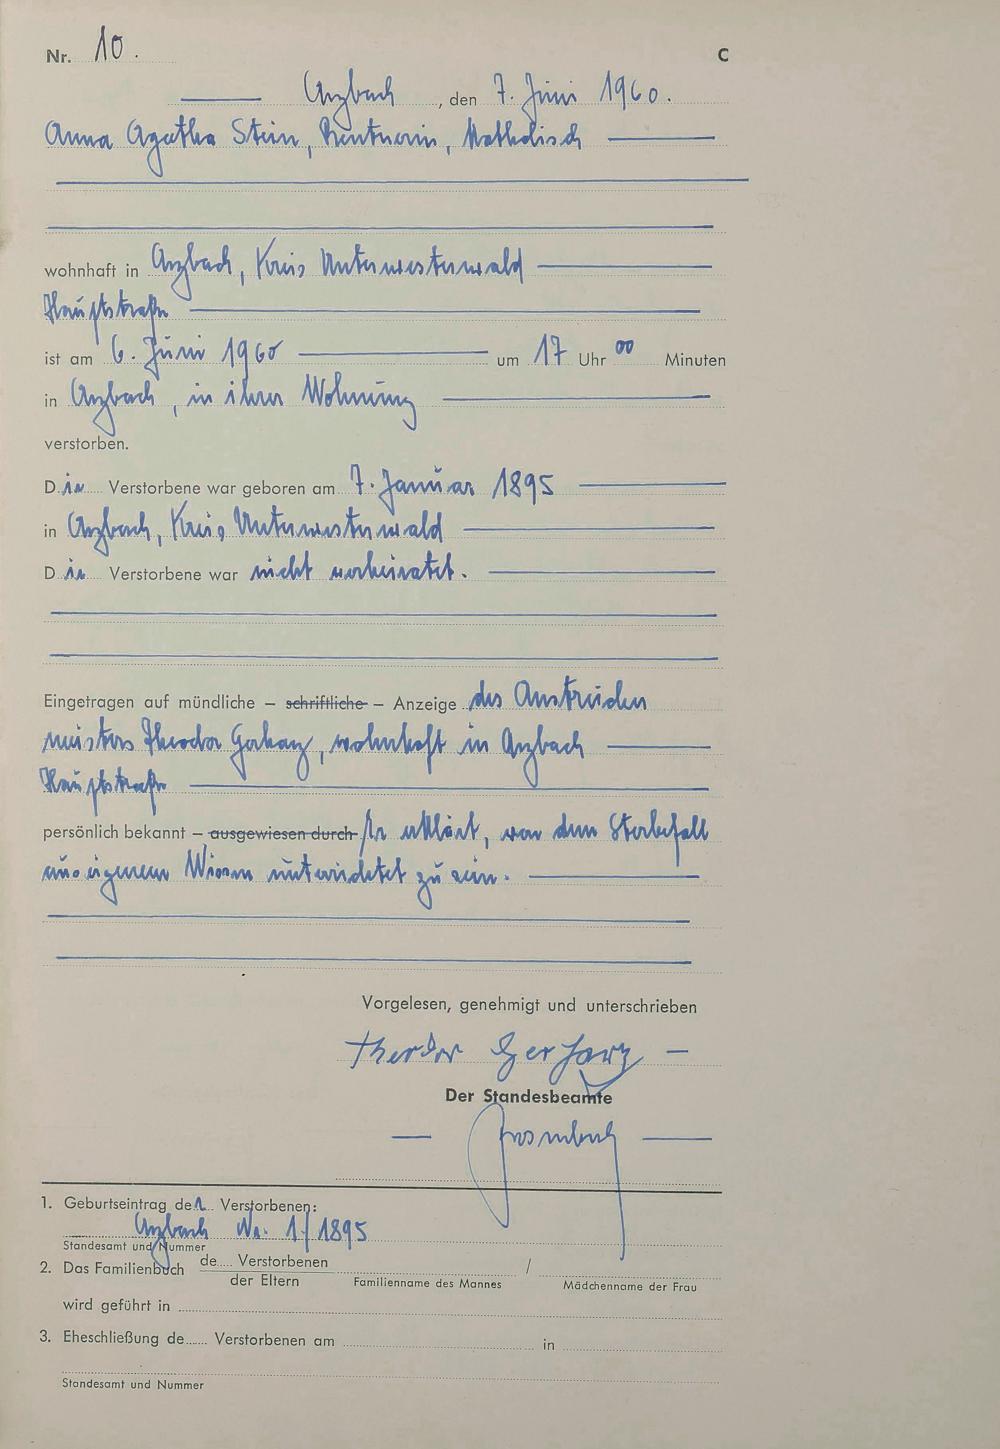 Nr. 10. C
Arzbach, den 7. Juni 1960.
Anna Agatha Stein, Rentnerin, katholisch
wohnhaft in Arzbach, Kreis Unterwesterwald
Hauptstraße
ist am 6. Juni 1960 um 17 Uhr 00 Minuten
in Arzbach, in ihrer Wohnung
verstorben.
Die Verstorbene war geboren am 7. Januar 1895
in Arzbach, Kreis Unterwesterwald
Die Verstorbene war nicht verheiratet.
Eingetragen auf mündliche – schriftliche – Anzeige des Anstreicher
meisters Theodor Gerharz, wohnhaft in Arzbach
Hauptstraße
persönlich bekannt – ausgewiesen durch Er erklärt, von dem Sterbefall
aus eigenem Wissen unterrichtet zu sein.
Vorgelesen, genehmigt und unterschrieben
Theodor Gerharz
Der Standesbeamte
1. Geburtseintrag der Verstorbenen:
Arzbach Nr. 1/1895
Standesamt und Nummer
2. Das Familienbuch de..... Verstorbenen /
der Eltern Familienname des Mannes Mädchenname der Frau
wird geführt in
3. Eheschließung de...... Verstorbenen am in
Standesamt und Nummer